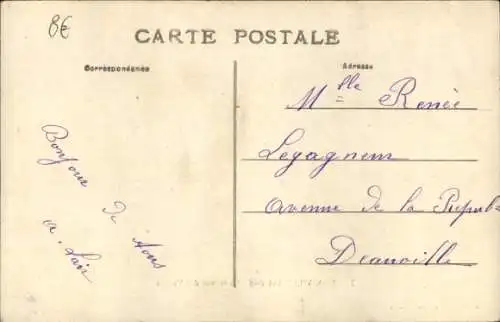 8€
CARTE POSTALE
Correspondance
Adresse
Mlle Renée
Legagneur
Avenue de la Republ
Deauville
Bonjour
de tous
a. Lair